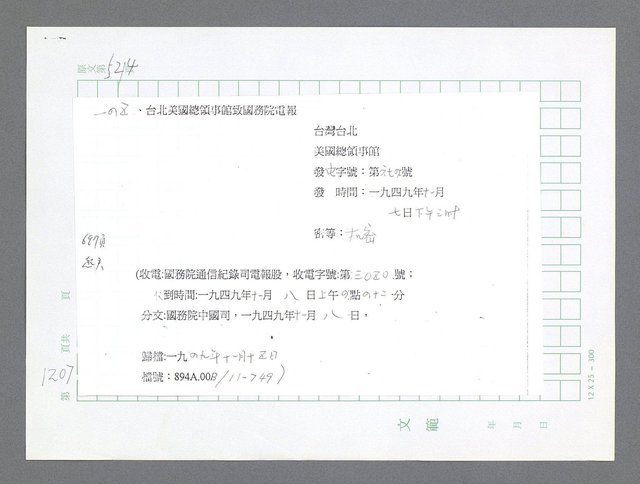 原文第5214
一四五、台北美國總領事館致國務院電報
台灣台北
美國總領事館
發電字號：第六七四號
發 時間：一九四九年十一月
七日下午三時
密等：機密
697頁
(收電:國務院通信紀錄司電報股，收電字號:第三〇五〇號；
收到時間:一九四九年十一月 八 日上午四點四十二分
分文:國務院中國司，一九四九年十一月 八 日，
歸檔:一九四九年十一月十五日
檔號：894A.00B/11-749)
頁
頁共
1207
第
12 X 25 = 300
文 範
年 月 日